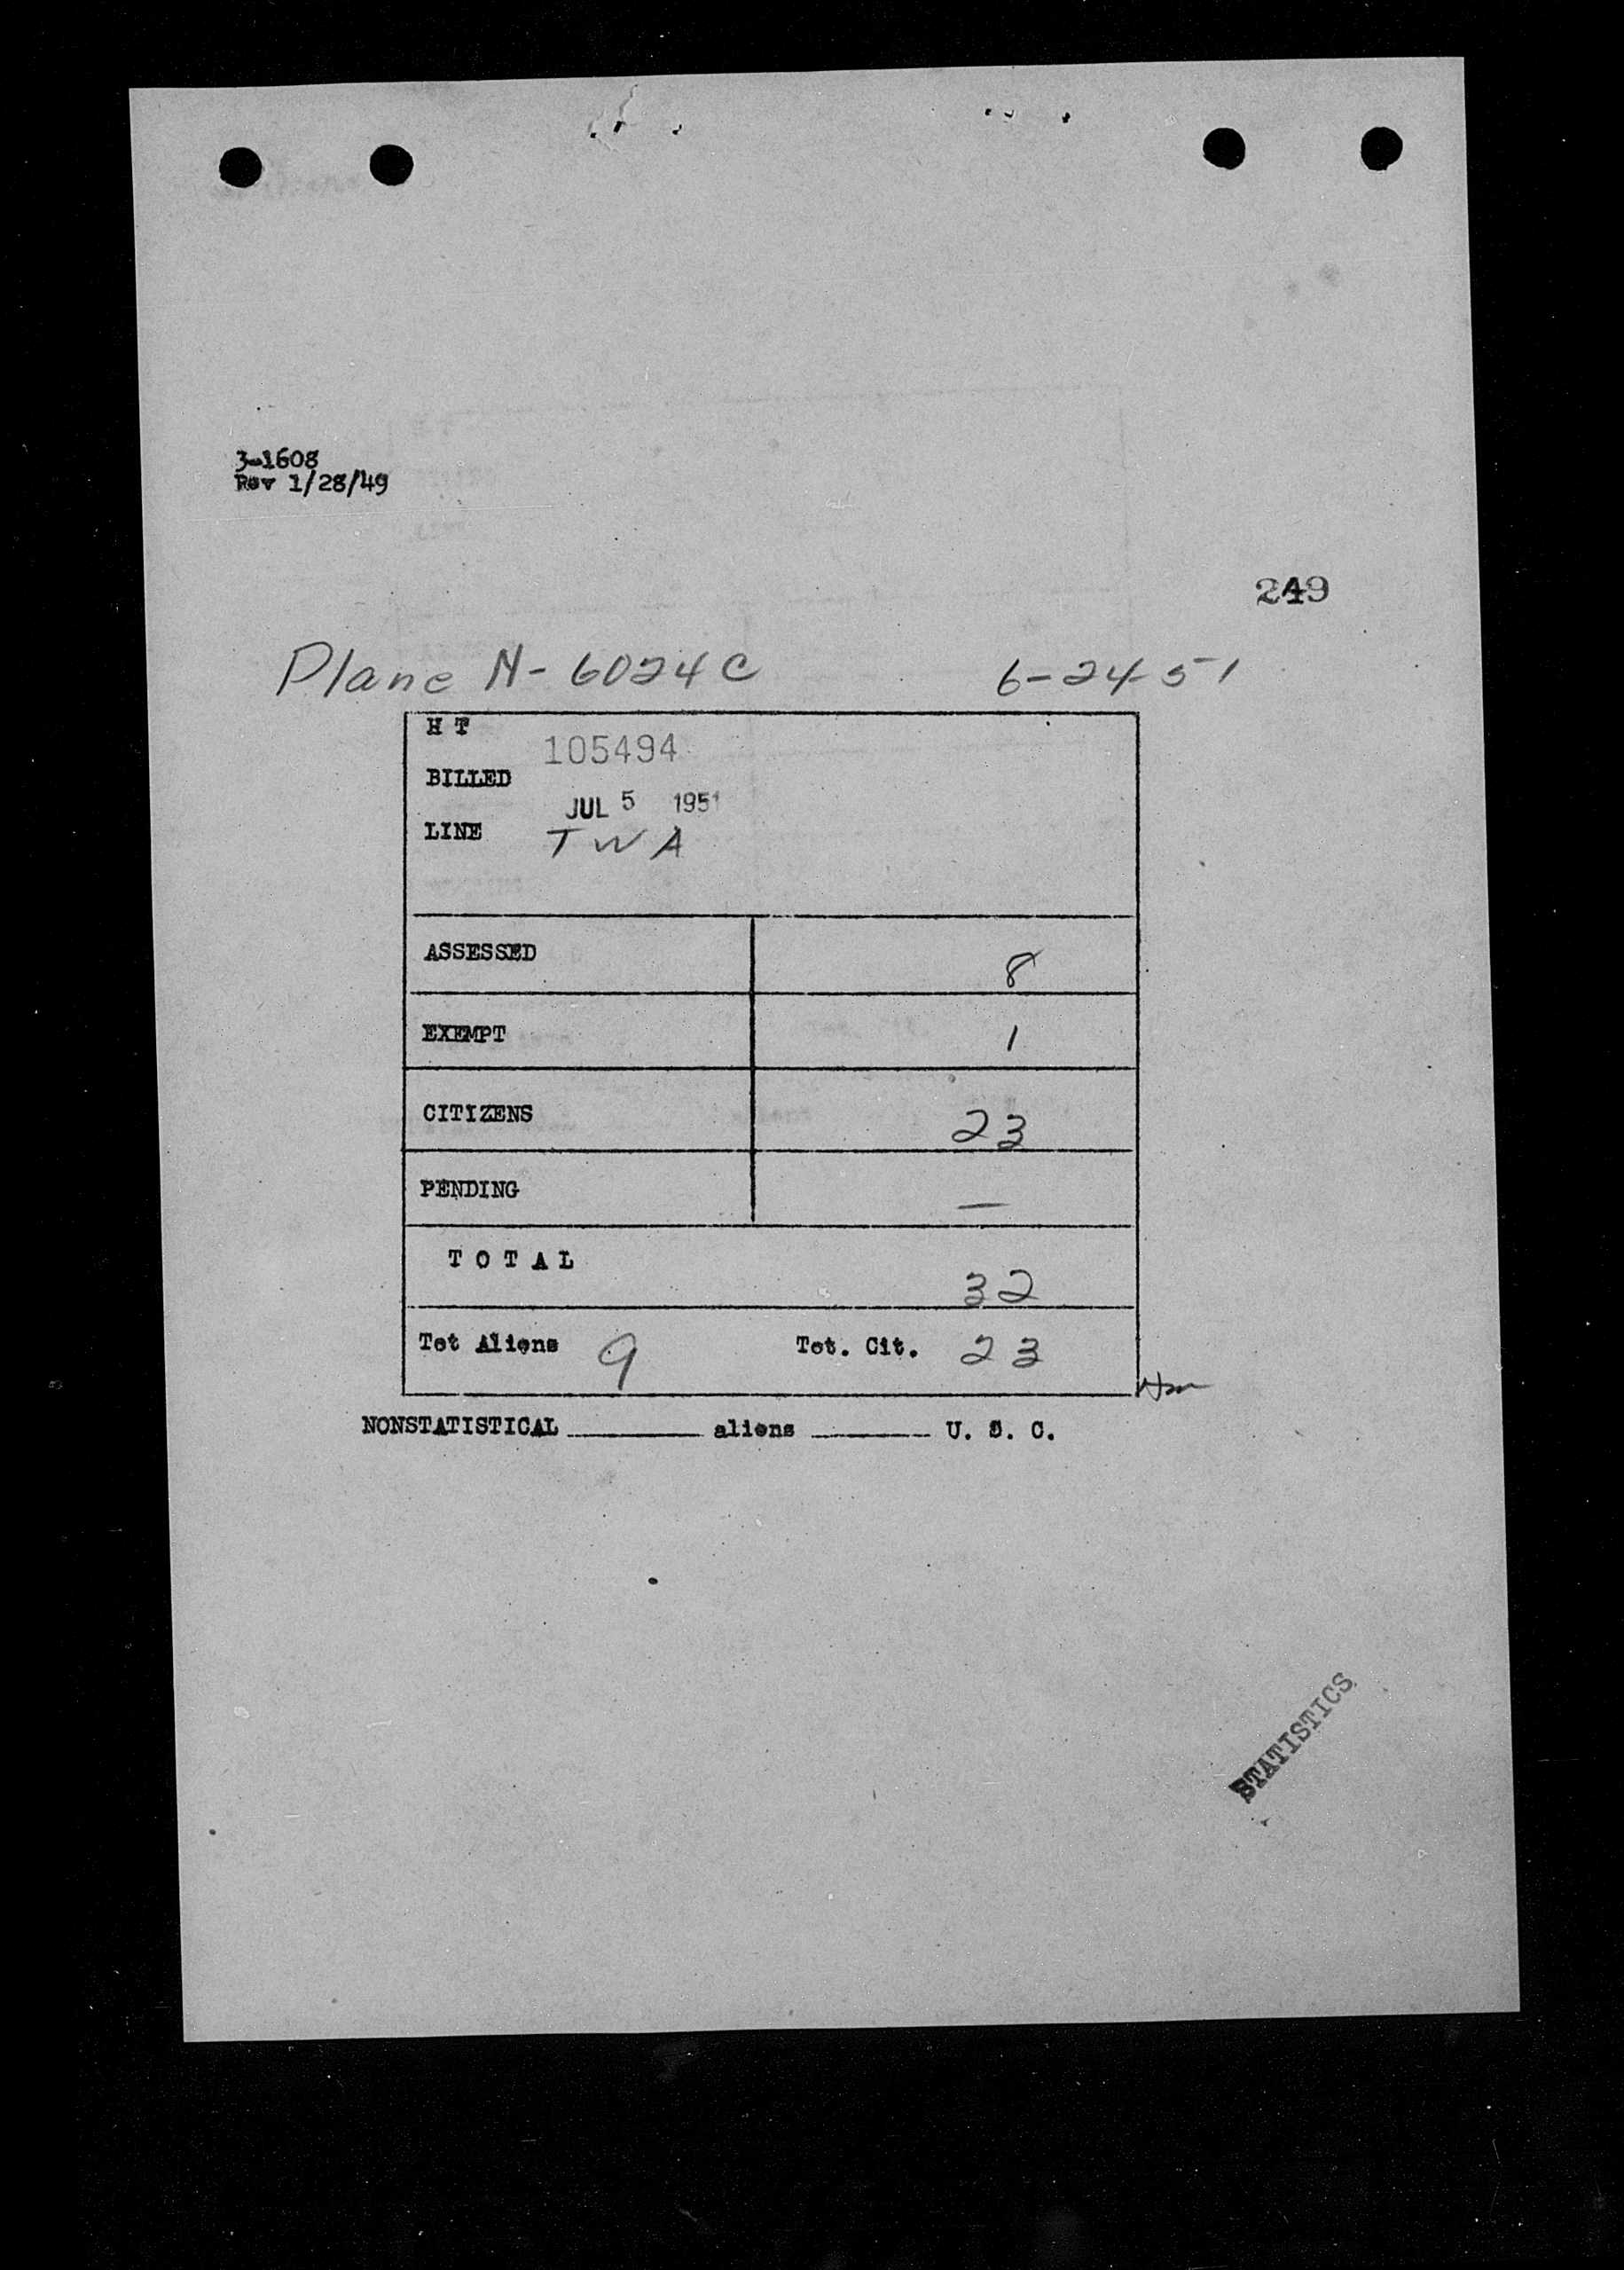 3-1608
Rev 1/28/49
249
Plane N-6024C 6-24-51
H T 105494
BILLED JUL 5 1951
LINE TWA
ASSESSED 8
EXEMPT 1
CITIZENS 23
PENDING —
T O T A L 32
Tot Aliens 9 Tot. Cit. 23
NONSTATISTICAL ______ aliens ______ U. S. C.
STATISTICS